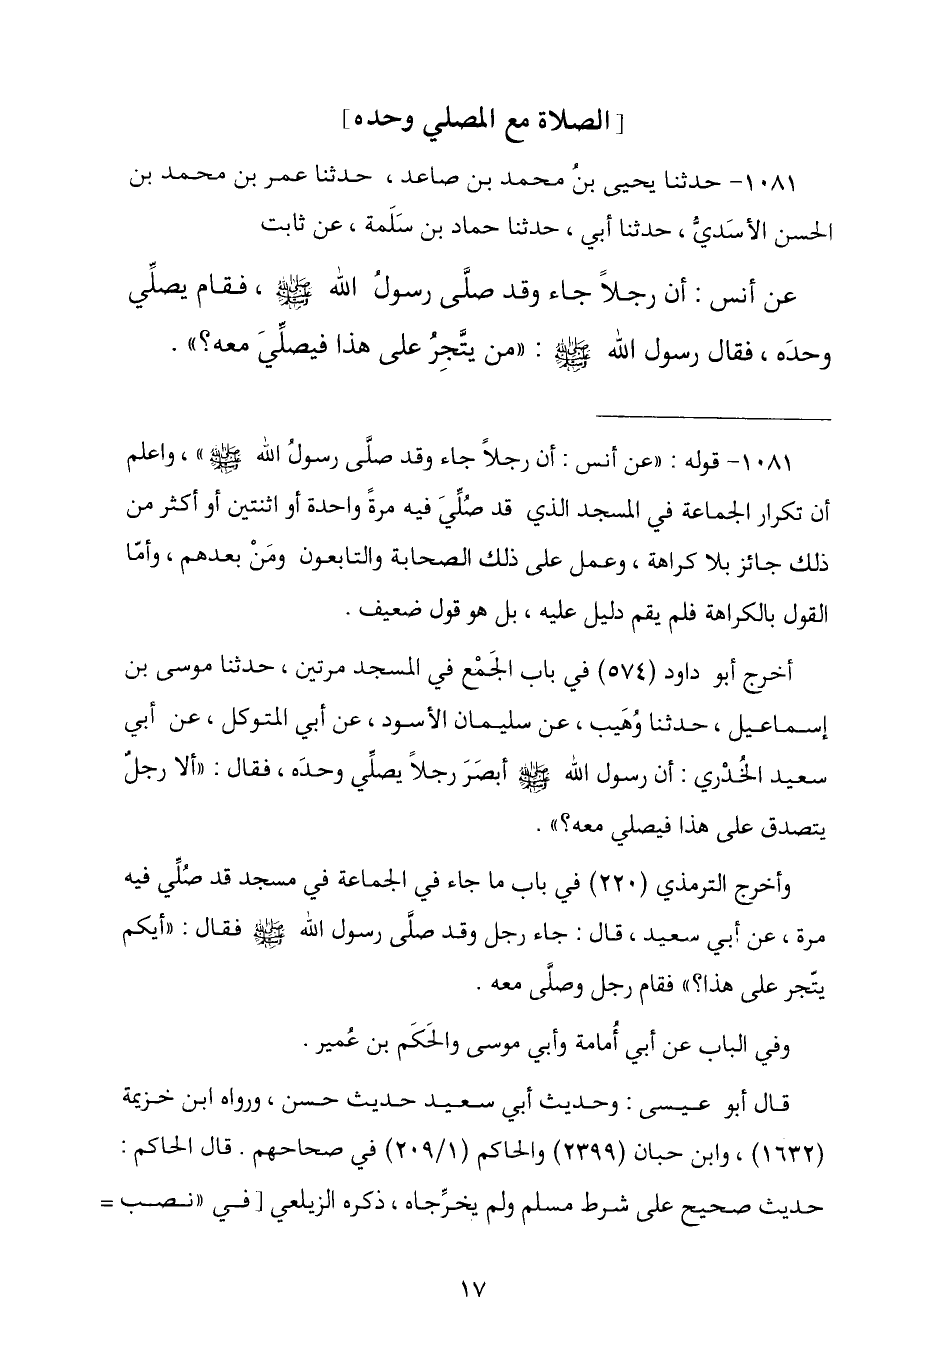 [الصلاة مع المصلي وحده]
١٠٨١- حدثنا يحيى بنُ محمد بن صاعد ، حدثنا عمر بن محمد بن
الحسن الأسَديُّ ، حدثنا أبي ، حدثنا حماد بن سَلَمة ، عن ثابت
عن أنس : أن رجلاً جاء وقد صلَّى رسولُ الله ﷺ ، فقام يصلِّي
وحدَه ، فقال رسول الله ﷺ : «من يتَّجِرُ على هذا فيصلِّيَ معه؟» .
١٠٨١- قوله : «عن أنس : أن رجلاً جاء وقد صلَّى رسولُ الله ﷺ» ، واعلم
أن تكرار الجماعة في المسجد الذي قد صُلِّيَ فيه مرةً واحدة أو اثنتين أو أكثر من
ذلك جائز بلا كراهة ، وعمل على ذلك الصحابة والتابعون ومَنْ بعدهم ، وأمّا
القول بالكراهة فلم يقم دليل عليه ، بل هو قول ضعيف .
أخرج أبو داود (٥٧٤) في باب الجَمْع في المسجد مرتين ، حدثنا موسى بن
إسماعيل ، حدثنا وُهَيب ، عن سليمان الأسود ، عن أبي المتوكل ، عن أبي
سعيد الخُدْري : أن رسول الله ﷺ أبصَرَ رجلاً يصلِّي وحدَه ، فقال : «ألا رجلٌ
يتصدق على هذا فيصلي معه؟» .
وأخرج الترمذي (٢٢٠) في باب ما جاء في الجماعة في مسجد قد صُلِّي فيه
مرة ، عن أبي سعيد ، قال : جاء رجل وقد صلَّى رسول الله ﷺ فقال : «أيكم
يتّجر على هذا؟» فقام رجل وصلَّى معه .
وفي الباب عن أبي أُمامة وأبي موسى والحَكَم بن عُمير .
قال أبو عيسى : وحديث أبي سعيد حديث حسن ، ورواه ابن خزيمة
(١٦٣٢) ، وابن حبان (٢٣٩٩) والحاكم (٢٠٩/١) في صحاحهم . قال الحاكم :
حديث صحيح على شرط مسلم ولم يخرِّجاه ، ذكره الزيلعي [في «نصب =
١٧